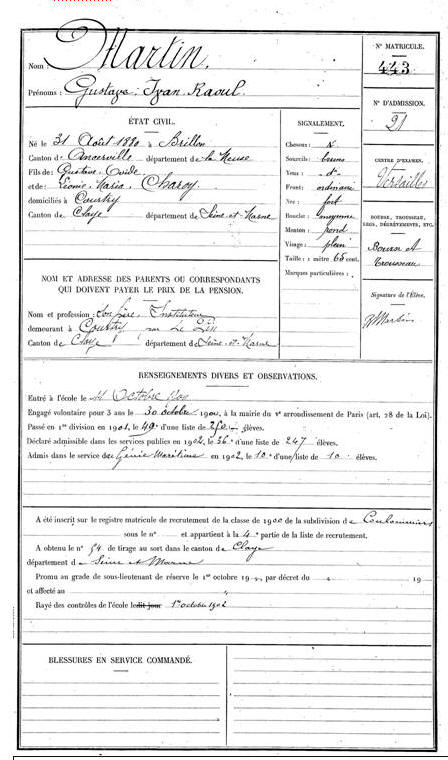 Nom Martin,
Prénoms : Gustave Ivan Raoul.
N° MATRICULE.
443
N° D'ADMISSION.
21
CENTRE D'EXAMEN.
Versailles
BOURSE, TROUSSEAU, LEGS, DÉGRÈVEMENTS, ETC.
Bourse et
trousseau
Signature de l'Élève.
Martin
ÉTAT CIVIL.
Né le 31 Août 1880 à Brillon
Canton de Ancerville département de la Meuse
Fils de : Gustave Ovide
et de : Léonie Maria Charoy
domiciliés à Courtry
Canton de Claye département de Seine-et-Marne
SIGNALEMENT.
Cheveux :
Sourcils : bruns
Yeux : d°
Front : ordinaire
Nez : fort
Bouche : moyenne
Menton : rond
Visage : plein
Taille : 1 mètre 68 cent.
Marques particulières :
NOM ET ADRESSE DES PARENTS OU CORRESPONDANTS
QUI DOIVENT PAYER LE PRIX DE LA PENSION.
Nom et profession : Son père, Instituteur
demeurant à Courtry par Le Pin
Canton de Claye département de Seine-et-Marne
RENSEIGNEMENTS DIVERS ET OBSERVATIONS.
Entré à l'école le Octobre 1900
Engagé volontaire pour 3 ans le 30 octobre 1900, à la mairie du Ve arrondissement de Paris (art. 28 de la Loi).
Passé en 1re division en 1901, le 49e d'une liste de élèves.
Déclaré admissible dans les services publics en 1902, le 36e d'une liste de 247 élèves.
Admis dans le service de Génie Maritime en 1902, le 10e d'une liste de 10 élèves.
A été inscrit sur le registre matricule de recrutement de la classe de 1900 de la subdivision de Coulommiers
sous le n° et appartient à la 4e partie de la liste de recrutement.
A obtenu le n° 54 de tirage au sort dans le canton de Claye
département d e Seine et Marne
Promu au grade de sous-lieutenant de réserve le 1er octobre 19 , par décret du 19
et affecté au
Rayé des contrôles de l'école ledit jour 1er octobre 1902
BLESSURES EN SERVICE COMMANDÉ.